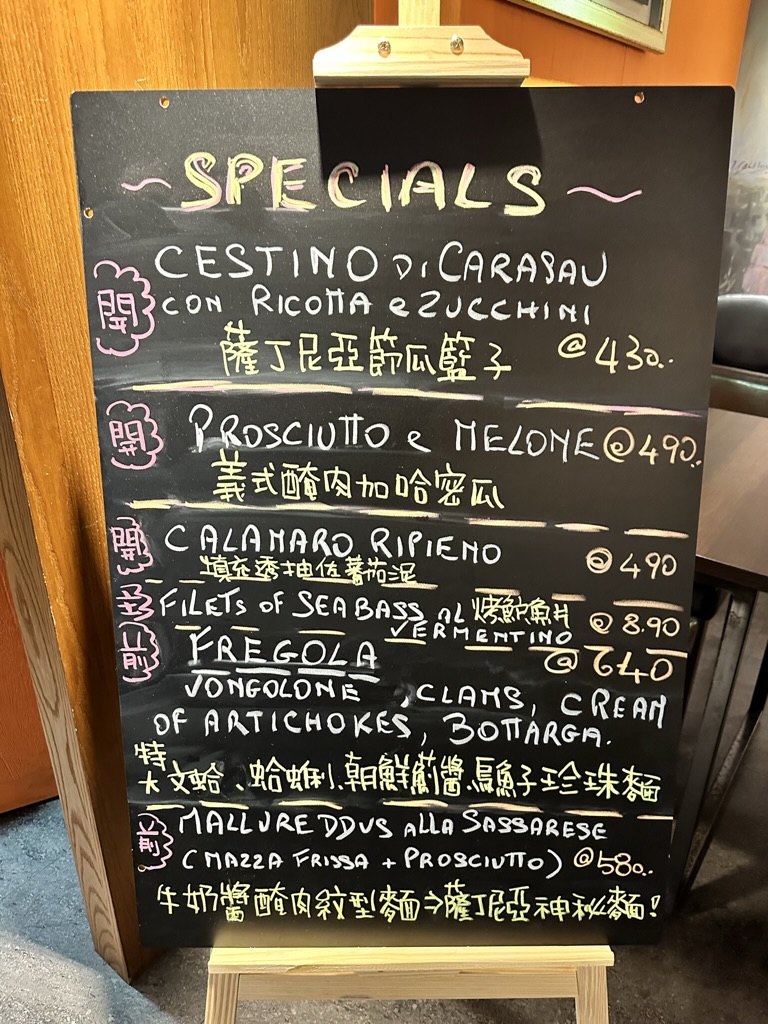 ~SPECIALS~
開 CESTINO DI CARASAU
CON RICOTTA e ZUCCHINI
薩丁尼亞節瓜籃子 @430..
開 PROSCIUTTO e MELONE @490..
義式醃肉加哈密瓜
開 CALAMARO RIPIENO @490
填充透抽佐蕃茄泥
主 FILETS OF SEABASS AL 烤鱸魚片 @8.90
VERMENTINO
前 FREGOLA @640
VONGOLONE, CLAMS, CREAM
OF ARTICHOKES, BOTTARGA.
特大文蛤、蛤蜊、朝鮮薊醬烏魚子珍珠麵
前 MALLUREDDUS ALLA SASSARESE
(MAZZA FRISSA + PROSCIUTTO) @580..
牛奶醬醃肉紋型麵⇒薩丁尼亞神秘麵!